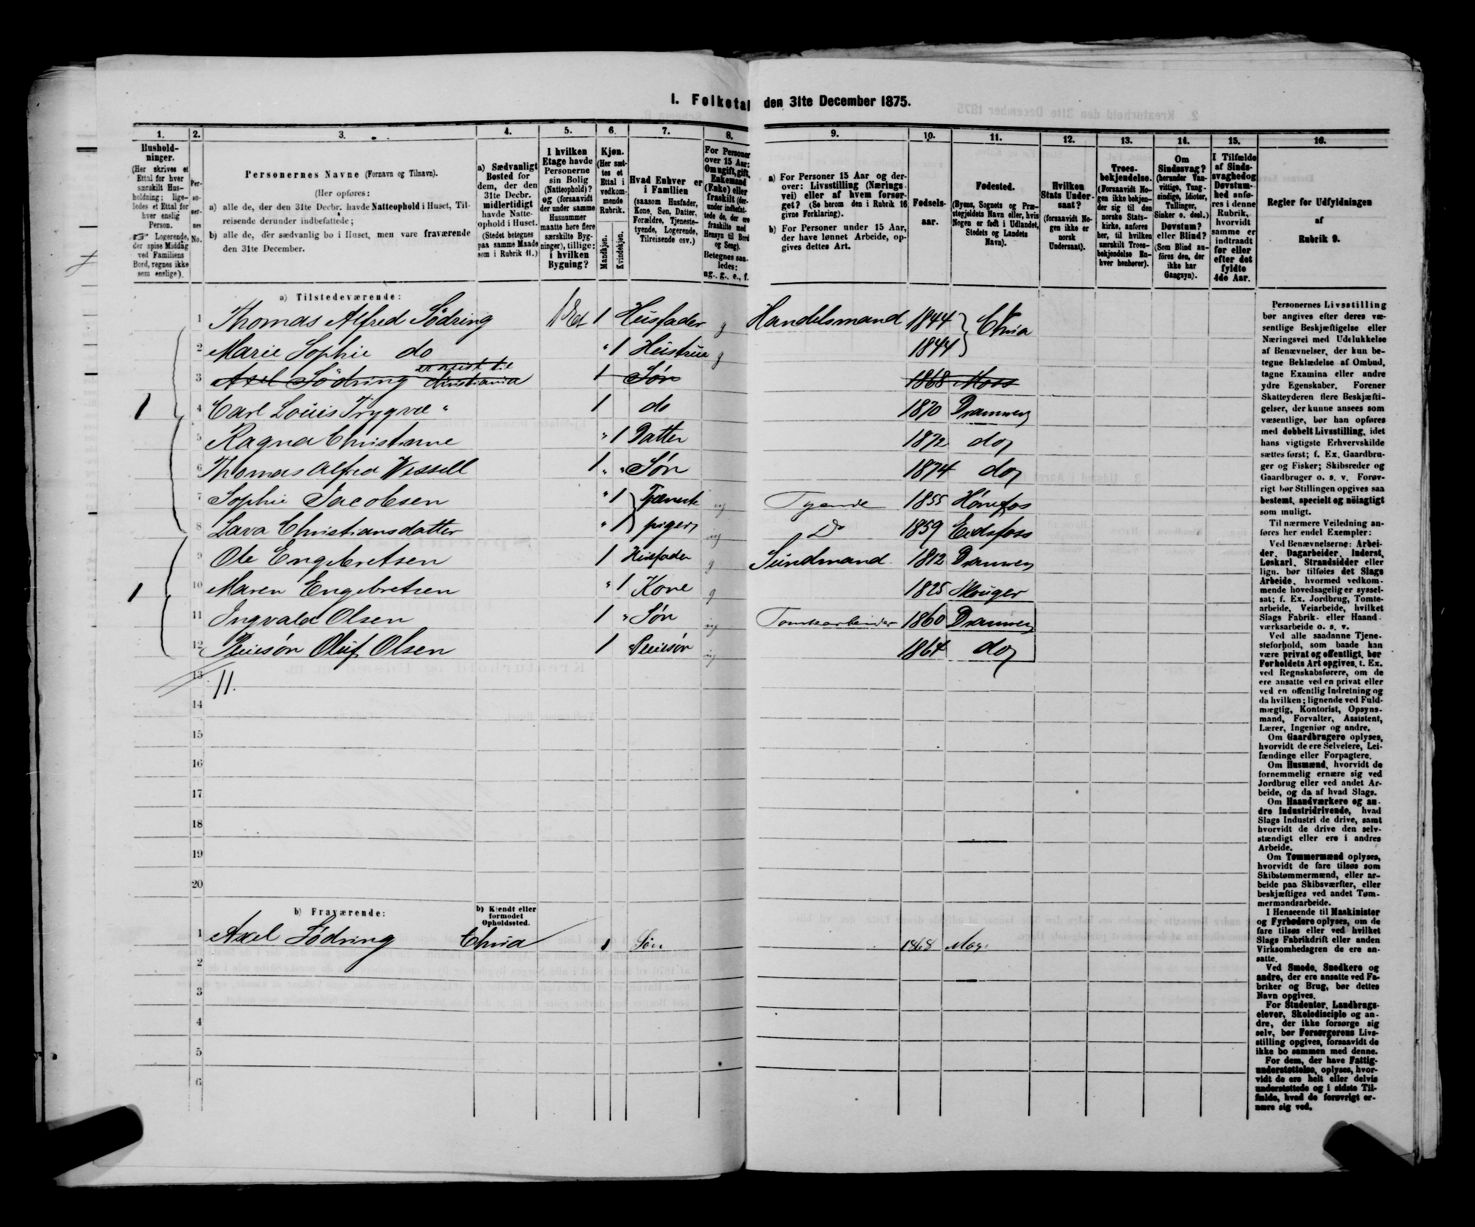 I. Folketal den 31te December 1875.
1. 2. 3. 4. 5. 6. 7. 8. 9. 10. 11. 12. 13. 14. 15. 16.
Hushold-
ninger.
(Her skrives et
Ettal for hver
særskilt Hus-
holdning; lige-
ledes et Ettal for
hver enslig
Person.
Logerende,
der spise Middag
ved Familiens
Bord, regnes ikke
som enslige).
Per-
so-
ner-
nes
No.
Personernes Navne (Fornavn og Tilnavn).
(Her opføres:
a) alle de, der den 31te Decbr. havde Natteophold i Huset, Til-
reisende derunder indbefattede;
b) alle de, der sædvanlig bo i Huset, men vare fraværende
den 31te December.
a) Sædvanligt
Bosted for
dem, der den
31te Decbr.
midlertidigt
havde Natte-
ophold i Huset.
(Stedet betegnes
paa samme Maade
som i Rubrik 11.)
I hvilken
Etage havde
Personerne
sin Bolig
(Natteophold)?
og (forsaavidt
der under samme
Husnummer
maatte høre flere
særskilte Byg-
ninger), tillige:
i hvilken
Bygning?
Kjøn.
(Her sæt-
tes et
Ettal i
vedkom-
mende
Rubrik.
Mandkjøn.
Kvindekjøn.
Hvad Enhver er
i Familien
(saasom Husfader,
Kone, Søn, Datter,
Forældre, Tjeneste-
tyende, Logerende,
Tilreisende osv.)
For Personer
over 15 Aar:
Om ugift, gift,
Enkemand
(Enke) eller
fraskilt
Betegnes saa-
ledes:
ug., g., e., f.
a) For Personer 15 Aar og der-
over: Livsstilling (Nærings-
vei) eller af hvem forsør-
get? (Se herom den i Rubrik 16
givne Forklaring).
b) For Personer under 15 Aar,
der have lønnet Arbeide, op-
gives dettes Art.
Fødsels-
aar.
Fødested.
(Byens, Sognets og Præ-
stegjeldets Navn eller, hvis
Nogen er født i Udlandet,
Stedets og Landets
Navn).
Hvilken
Stats Under-
saat?
(forsaavidt No-
gen ikke er
norsk
Undersaat).
Troes-
bekjendelse.
(Forsaavidt No-
gen ikke bekjen-
der sig til den
norske Stats-
kirke, anføres
her, til hvilken
særskilt Troes-
bekjendelse En-
hver henhører).
Om
Sindssvag?
(herunder Van-
vittige, Tung-
sindige, Idioter,
Tullinger,
Sinker o. desl.)
Døvstum?
eller Blind?
(Som Blind an-
føres den, der
ikke har
Gangsyn).
I Tilfælde
af Sinds-
svaghed og
Døvstum-
hed anfø-
res i denne
Rubrik,
hvorvidt
samme er
indtraadt
før eller
efter det
fyldte
4de Aar.
Regler for Udfyldningen
af
Rubrik 9.
a) Tilstedeværende:
1 Thomas Alfred Södring 1 Et 1 Husfader g Handelsmand 1844 Chria
2 Marie Sophie do " 1 Hustrue g 1844
3 Axel Södring Christiania 1 Søn 1868 Moss
1 4 Carl Louis Trygve " 1 do 1870 Drammen
5 Ragna Christiane " 1 Datter 1872 do
6 Thomas Alfred Wessell 1 " Søn 1874 do
7 Sophie Jacobsen " 1 Tjeneste ug Tyende 1855 Hønefos
8 Lava Christiansdatter " 1 piger ug Do 1859 Eidsfoss
9 Ole Engebretsen 1 Husfader g Sundmand 1812 Drammen
1 10 Maren Engebretsen " 1 Kone g 1825 Skouger
11 Ingvald Olsen 1 " Søn ug Tomtearbeider 1860 Drammen
12 Pleiesøn Oluf Olsen 1 Pleiesøn ug 1864 do
13 11.
14
15
16
17
18
19
20
b) Fraværende:
b) Kjendt eller
formodet
Opholdssted.
1 Axel Södring Chria 1 Søn 1868 Mos
2
3
4
5
6
Personernes Livsstilling
bør angives efter deres væ-
sentlige Beskjæftigelse eller
Næringsvei med Udelukkelse
af Benævnelser, der kun be-
tegne Beklædelse af Ombud,
tagne Examina eller andre
ydre Egenskaber. Forener
Skatteyderen flere Beskjæfti-
gelser, der kunne ansees som
væsentlige, bør han opføres
med dobbelt Livsstilling, idet
hans vigtigste Erhvervskilde
sættes først; f. Ex. Gaardbru-
ger og Fisker; Skibsreder og
Gaardbruger o. s. v. Forøv-
rigt bør Stillingen opgives saa
bestemt, specielt og nøiagtigt
som muligt.
Til nærmere Veiledning an-
føres her endel Exempler:
Ved Benævnelserne: Arbei-
der, Dagarbeider, Inderst,
Løskarl, Strandsidder eller
lign. bør tilføies det Slags
Arbeide, hvormed vedkom-
mende hovedsagelig er syssel-
sat; f. Ex. Jordbrug, Tomte-
arbeide, Veiarbeide, hvilket
Slags Fabrik- eller Haand-
værksarbeide o. s. v.
Ved alle saadanne Tjene-
steforhold, som baade kan
være privat og offentligt, bør
Forholdets Art opgives, t. Ex.
ved Regnskabsførere, om de
ere ansatte ved en privat eller
ved en offentlig Indretning og
da hvilken; lignende ved Fuld-
mægtig, Kontorist, Opsyns-
mand, Forvalter, Assistent,
Lærer, Ingeniør og andre.
Om Gaardbrugere oplyses,
hvorvidt de ere Selveiere, Lei-
fændinge eller Forpagtere.
Om Husmænd, hvorvidt de
fornemmelig ernære sig ved
Jordbrug eller ved andet Ar-
beide, og da af hvad Slags.
Om Haandværkere og an-
dre Industridrivende, hvad
Slags Industri de drive, samt
hvorvidt de drive den selv-
stændigt eller ere i andres
Arbeide.
Om Tømmermænd oplyses,
hvorvidt de fare tilsøs som
Skibstømmermænd, eller ar-
beide paa Skibsværfter, eller
beskjæftiges ved andet Tøm-
mermandsarbeide.
I Henseende til Maskinister
og Fyrbødere oplyses, om de
fare tilsøs eller ved hvilket
Slags Fabrikdrift eller anden
Virksomhedsgren de ere an-
satte.
Ved Smede, Snedkere og
andre, der ere ansatte ved Fa-
briker og Brug, bør dettes
Navn opgives.
For Studenter, Landbrugs-
elever, Skoledisciple og an-
dre, der ikke forsørge sig
selv, bør Forsørgerens Livs-
stilling opgives, forsaavidt de
ikke bo sammen med denne.
For dem, der have Fattig-
understøttelse, oplyses, hvor-
vidt de ere helt eller delvis
understøttede og i sidste Til-
fælde, hvad de forøvrigt er-
nære sig ved.